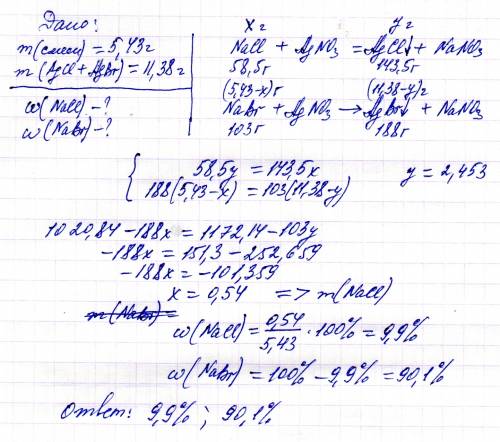 Дано:
m(смеси) = 5,43г
m(AgCl+AgBr)=11,38г
w(NaCl)-?
w(NaBr)-?
x г y г
NaCl + AgNO3 = AgCl↓ + NaNO3
58,5г 143,5г
(5,43-x)г (11,38-y)г
NaBr + AgNO3 → AgBr↓ + NaNO3
103г 188г
58,5y = 143,5x
188(5,43-x) = 103(11,38-y)
y = 2,453
1020,84-188x = 1172,14-103y
-188x = 151,3-252,659
-188x = -101,359
x = 0,54 => m(NaCl)
m(NaBr)=
w(NaCl) = 0,54/5,43 · 100% = 9,9%
w(NaBr) = 100% - 9,9% = 90,1%
Ответ: 9,9% ; 90,1%